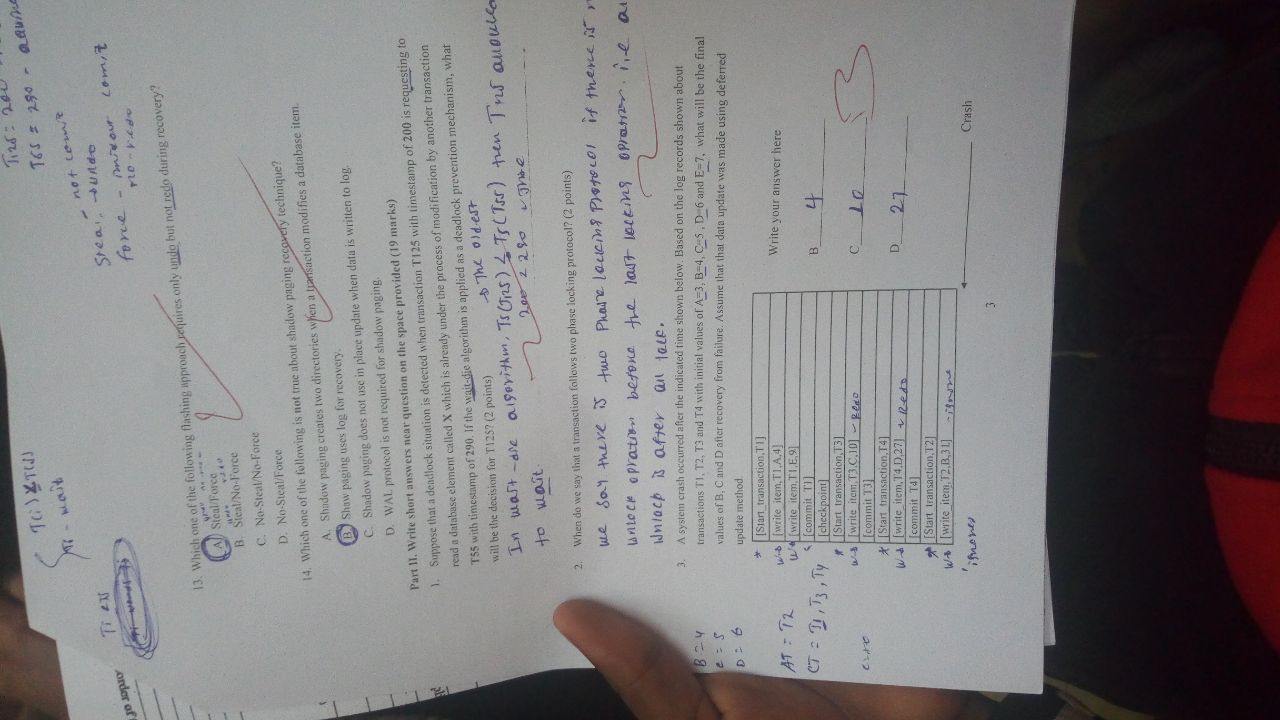 T125 = 200
T55 = 290
Steal - not comit
→ undo
force - comit
no-redo
Ti - wait
13. Which one of the following flashing approach requires only undo but not redo during recovery?
A. Steal/Force
B. Steal/No-Force
C. No-Steal/No-Force
D. No-Steal/Force
14. Which one of the following is not true about shadow paging recovery technique?
A. Shadow paging creates two directories when a transaction modifies a database item.
B. Shaw paging uses log for recovery.
C. Shadow paging does not use in place update when data is written to log.
D. WAL protocol is not required for shadow paging.
Part II. Write short answers near question on the space provided (19 marks)
1. Suppose that a deadlock situation is detected when transaction T125 with timestamp of 200 is requesting to
read a database element called X which is already under the process of modification by another transaction
T55 with timestamp of 290. If the wait-die algorithm is applied as a deadlock prevention mechanism, what
will be the decision for T125? (2 points)
→ The oldest
In wait-die algorithm, Ts(T125) < Ts(T55) then T125
to wait 200 < 290 - True
2. When do we say that a transaction follows two phase locking protocol? (2 points)
we say there is two Phase locking Protocol if there is
unlock opration before the last locking opration. i.e
Unlock is after all lock.
3. A system crash occurred after the indicated time shown below. Based on the log records shown about
transactions T1, T2, T3 and T4 with initial values of A=3, B=4, C=5, D=6 and E=7, what will be the final
values of B, C and D after recovery from failure. Assume that that data update was made using deferred
update method.
B = 4
C = 5
D = 6
AT = T2
CT = T1, T3, T4
C=10
* [Start_transaction,T1]
[write_item,T1,A,4]
[write_item,T1,E,9]
[commit T1]
[checkpoint]
* [Start_transaction,T3]
[write_item,T3,C,10] - Redo
[commit T3]
* [Start transaction,T4]
[write_item,T4,D,27] - Redo
[commit T4]
* [Start_transaction,T2]
[write_item,T2,B,31] - ignore
ignores
Write your answer here
B 4
C 10
D 27
3
Crash